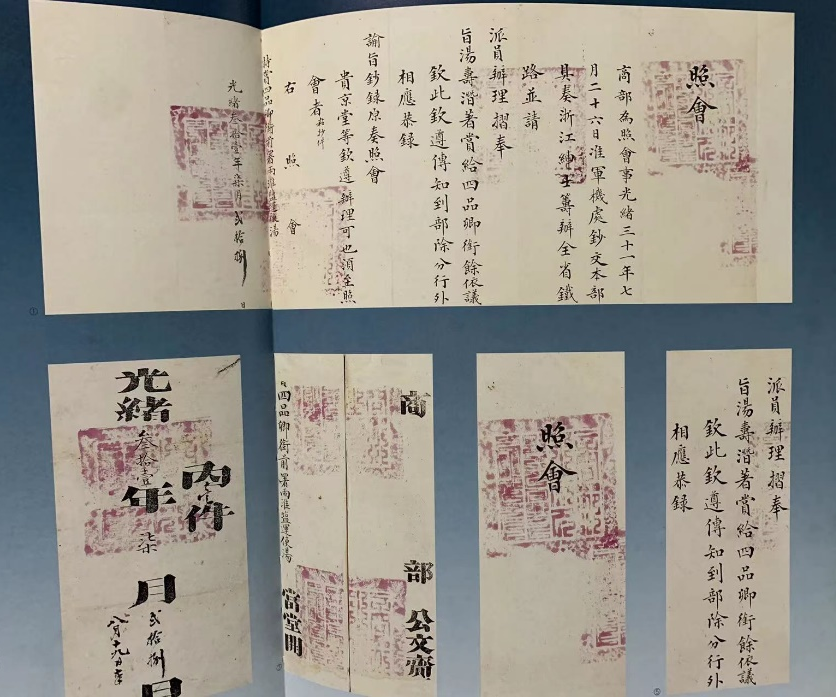 照會
商部為照會事光緒三十一年七
月二十六日准軍機處鈔交本部
具奏浙江紳士籌辦全省鐵
路並請
派員辦理摺奉
旨湯壽潛著賞給四品卿銜餘依議
欽此欽遵傳知到部除分行外
相應恭録
諭旨鈔録原奏照會
貴京堂等欽遵辦理可也須至照
會者
右照會
特賞四品卿銜前署兩淮鹽運使湯
光緒叁拾壹年柒月貳拾捌日
①
派員辦理摺奉
旨湯壽潛著賞給四品卿銜餘依議
欽此欽遵傳知到部除分行外
相應恭録
照會
商部公文齎
四品卿銜前署兩淮鹽運使湯當堂開
內件
光緒叁拾壹年柒月貳拾捌日
八月十九日